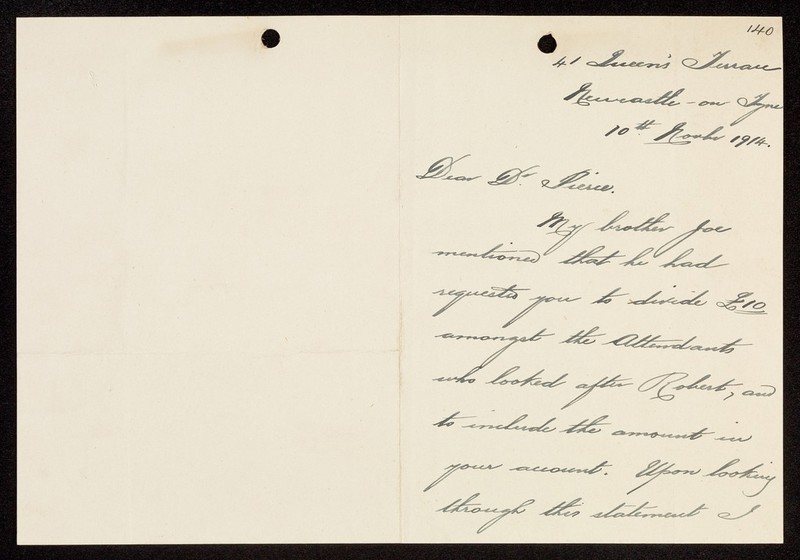 140
41 Queen's Terrace
Newcastle-on Tyne
10th Novbr 1914.
Dear Dr. Pierce.
My brother Joe
mentioned that he had
requested you to divide £10
amongst the Attendants
who looked after Robert, and
to include the amount in
your account. Upon looking
through this statement I